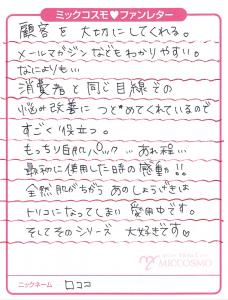 ミックコスモ♥ファンレター
顧客を 大切にしてくれる。
メールマガジンなどもわかりやすい。
なによりも…
消費者と同じ目線での
悩み改善に つとめてくれているので
すごく役立つ。
もっちり白肌パック… あれ程…
最初に使用した時の感動!!
全然肌がちがう あのしょうげきは
トリコになってしまい 愛用中です。
そしてそのシリーズ 大好きです♡
MICCOSMO
ニックネーム ロココ